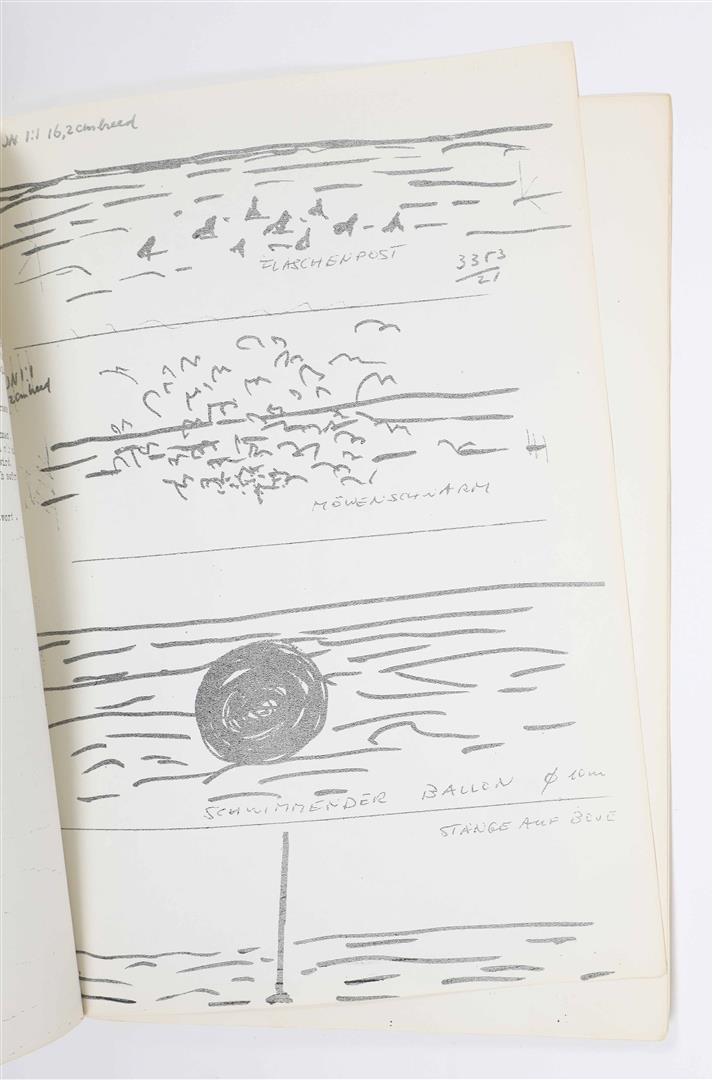 1:1 16,2cm breed
FLASCHENPOST
3353
21
1:1
MÖWENSCHWARM
SCHWIMMENDER BALLON Ø 10m
STANGE AUF BOJE